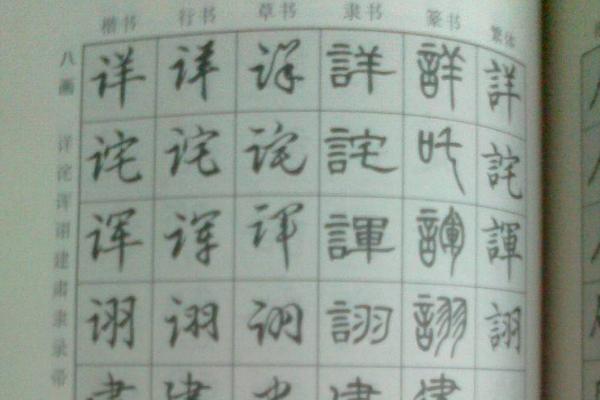 楷书 行书 草书 隶书 篆书 繁体
八画
详 详 详 詳 詳 詳
诧 诧 诧 詫 詫
诨 诨 诨 諢 諢 諢
诩 诩 诩 詡 詡 詡
详
诧
诨
诩
建
肃
隶
录
帚